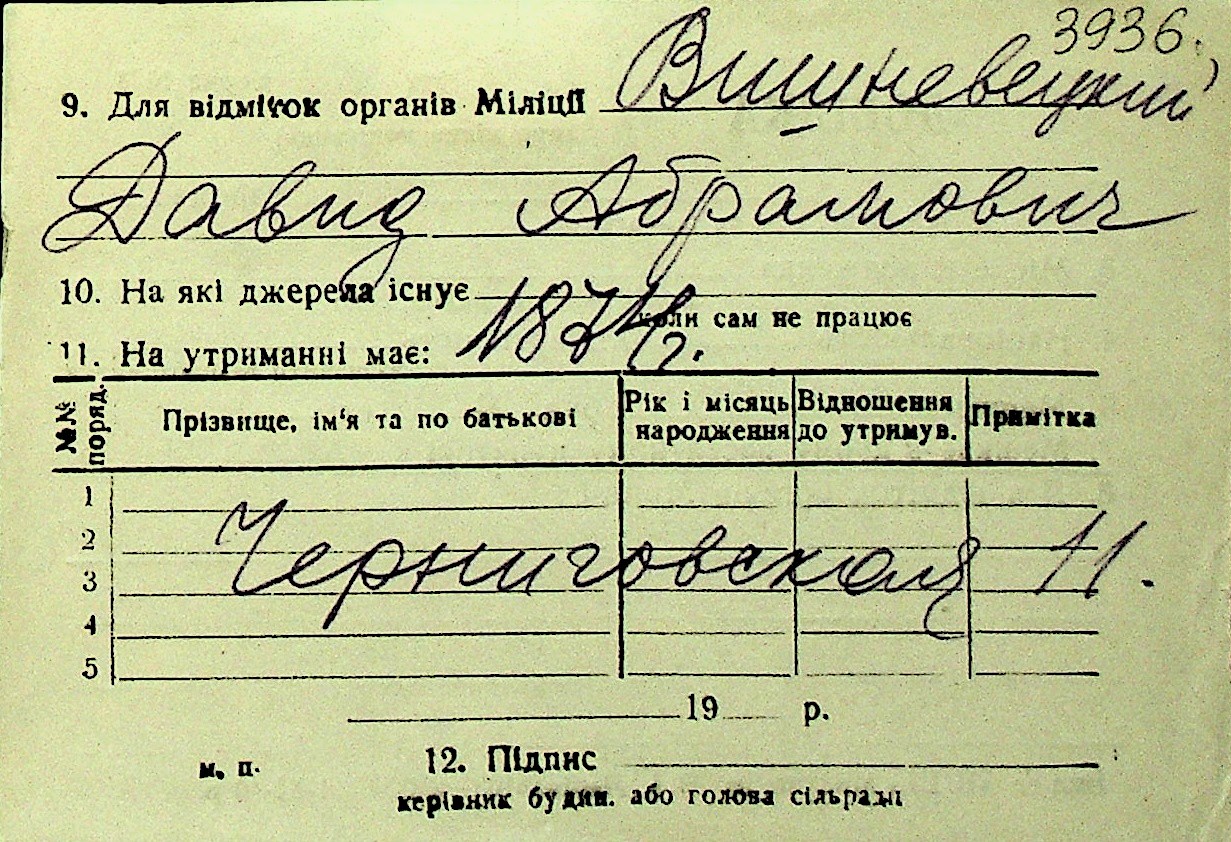 3936.
9. Для відміток органів Міліції Вишневецкий
Давид Абрамович
10. На які джерела існує
коли сам не працює
11. На утриманні має: 1874г.
№№ поряд. Прізвище, ім‘я та по батькові Рік і місяць народження Відношення до утримув. Примітка
1
2
Черниговская 11.
3
4
5
19 р.
м. п. 12. Підпис
керівник будин. або голова сільради